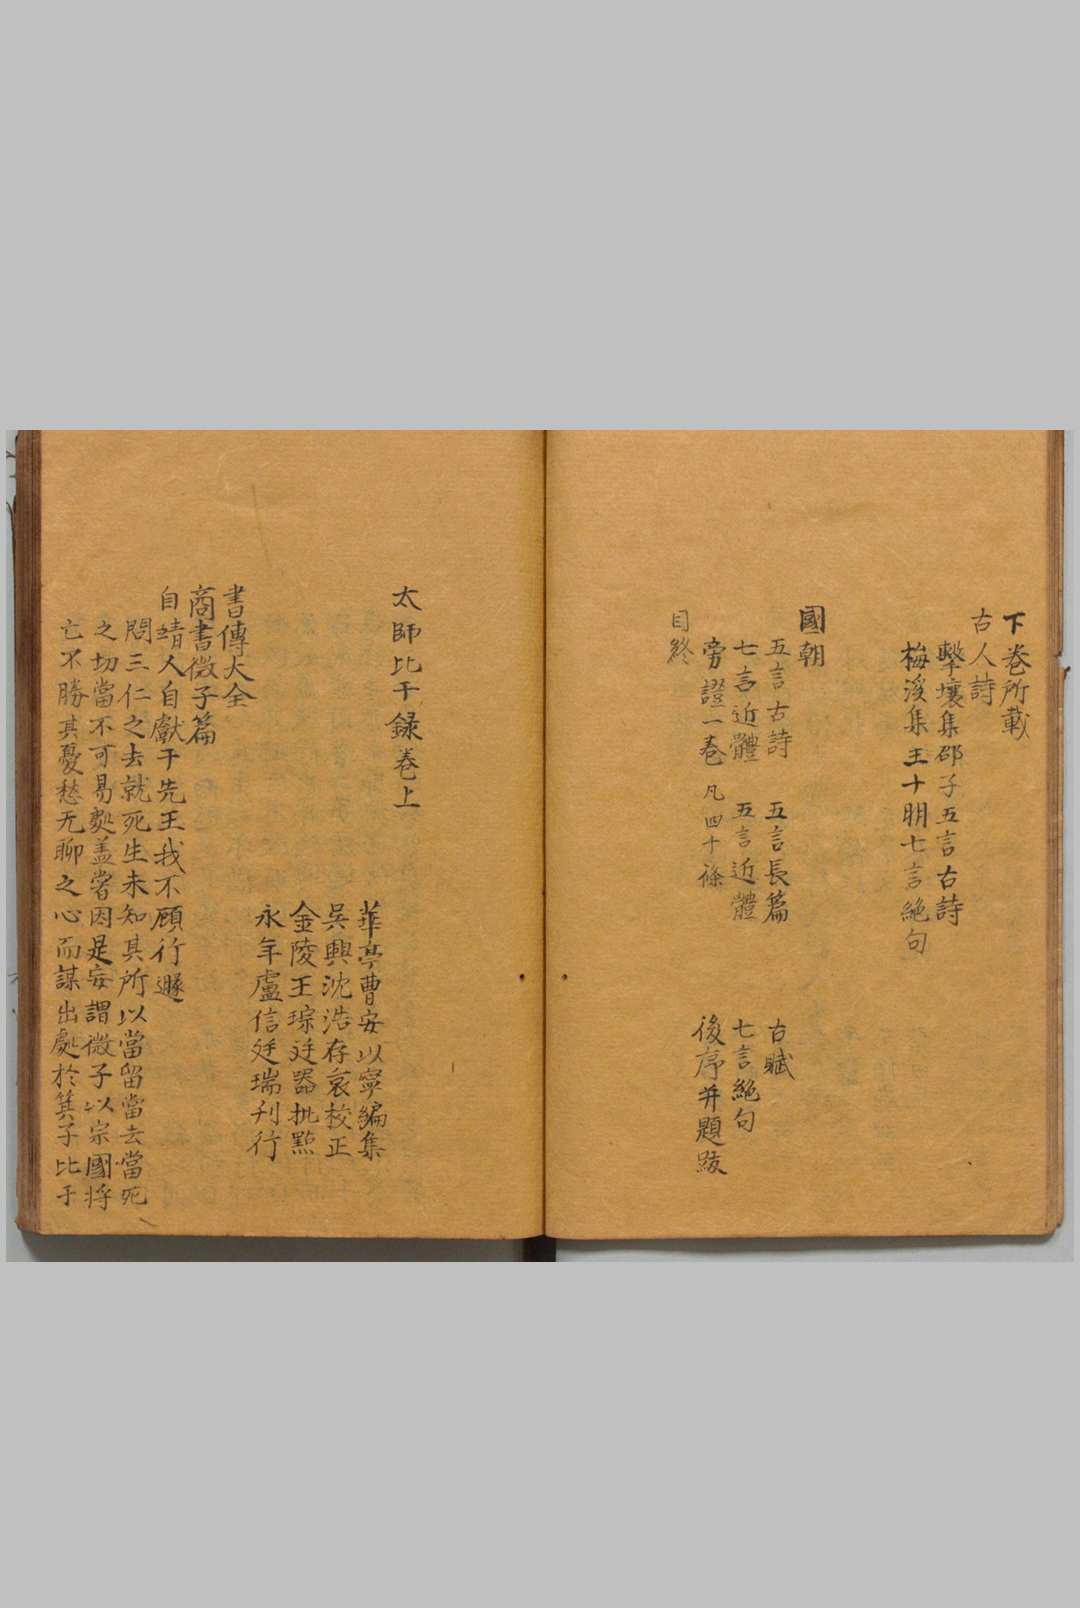 下卷所載
古人詩
擊壤集邵子五言古詩
梅溪集王十朋七言絶句
國朝
五言古詩　五言長篇　古賦
七言近體　五言近體　七言絶句
旁證一卷凡四十條　後序并題跋
目終
太師比干録卷上
華亭曹安以寧編集
吳興沈浩存哀校正
金陵王琮廷器批點
永年盧信廷瑞刋行
書傳大全
商書微子篇
自靖人自獻于先王我不顧行遯
問三仁之去就死生未知其所以當留當去當死
之切當不可易處盖嘗因是妄謂微子以宗國將
亡不勝其憂愁无聊之心而謀出處於箕子比干